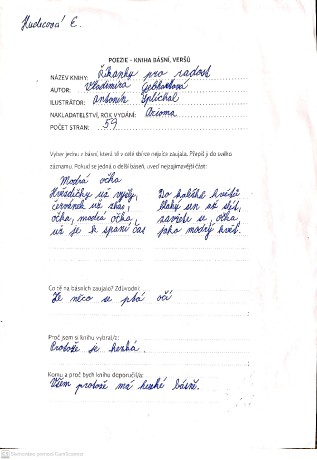 Hudecová E.
POEZIE - KNIHA BÁSNÍ, VERŠŮ
NÁZEV KNIHY: Říkanky pro radost
AUTOR: Vladimíra Gebhartová
ILUSTRÁTOR: Antonín Šplíchal
NAKLADATELSTVÍ, ROK VYDÁNÍ: Axioma
POČET STRAN: 59
Vyber jednu z básní, která tě v celé sbírce nejvíce zaujala. Přepiš ji do svého
záznamu. Pokud se jedná o delší báseň, uveď nejzajímavější část:
Modrá očka
Hvězdičky už vyšly,
červánek už zhas,
očka, modrá očka,
už je k spaní čas
Do kalíšků květů
sladký sen už slét,
zavřete se, očka
jako modrý květ.
Co tě na básních zaujalo? Zdůvodni:
Že něco se ptá očí
Proč jsem si knihu vybral/a:
Protože je hezká.
Komu a proč bych knihu doporučil/a:
Všem protože má hezké básně.